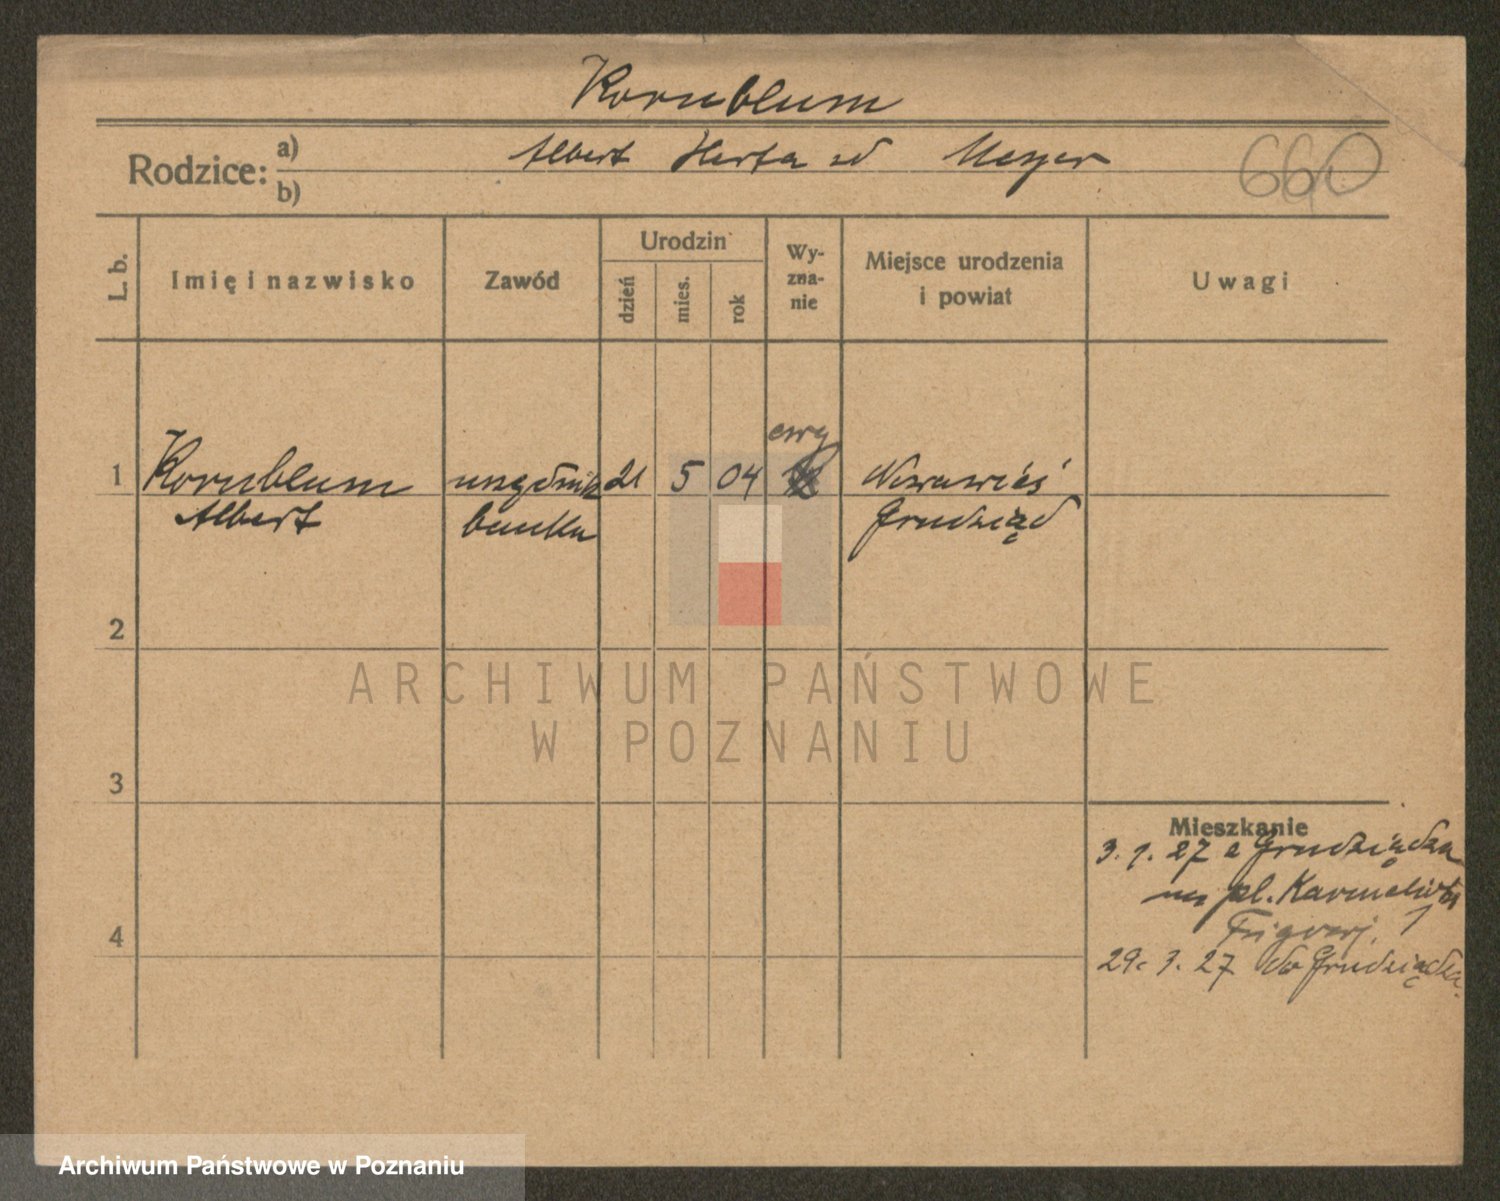 Kornblum
Rodzice: a) Albert Herta zd Meyer
b)
660
L. b.
Imię i nazwisko
Zawód
Urodzin
dzień
mies.
rok
Wy-
zna-
nie
Miejsce urodzenia
i powiat
Uwagi
ewg
1 Kornblum 21 5 04 Nowawieś
Albert banku Grudziąd
2
ARCHIWUM PAŃSTWOWE
W POZNANIU
3
Mieszkanie
3. 1. 27 z Grudziądza
na pl. Karmelicki
1
4
29. 3. 27 do Grudziądza.
Archiwum Państwowe w Poznaniu